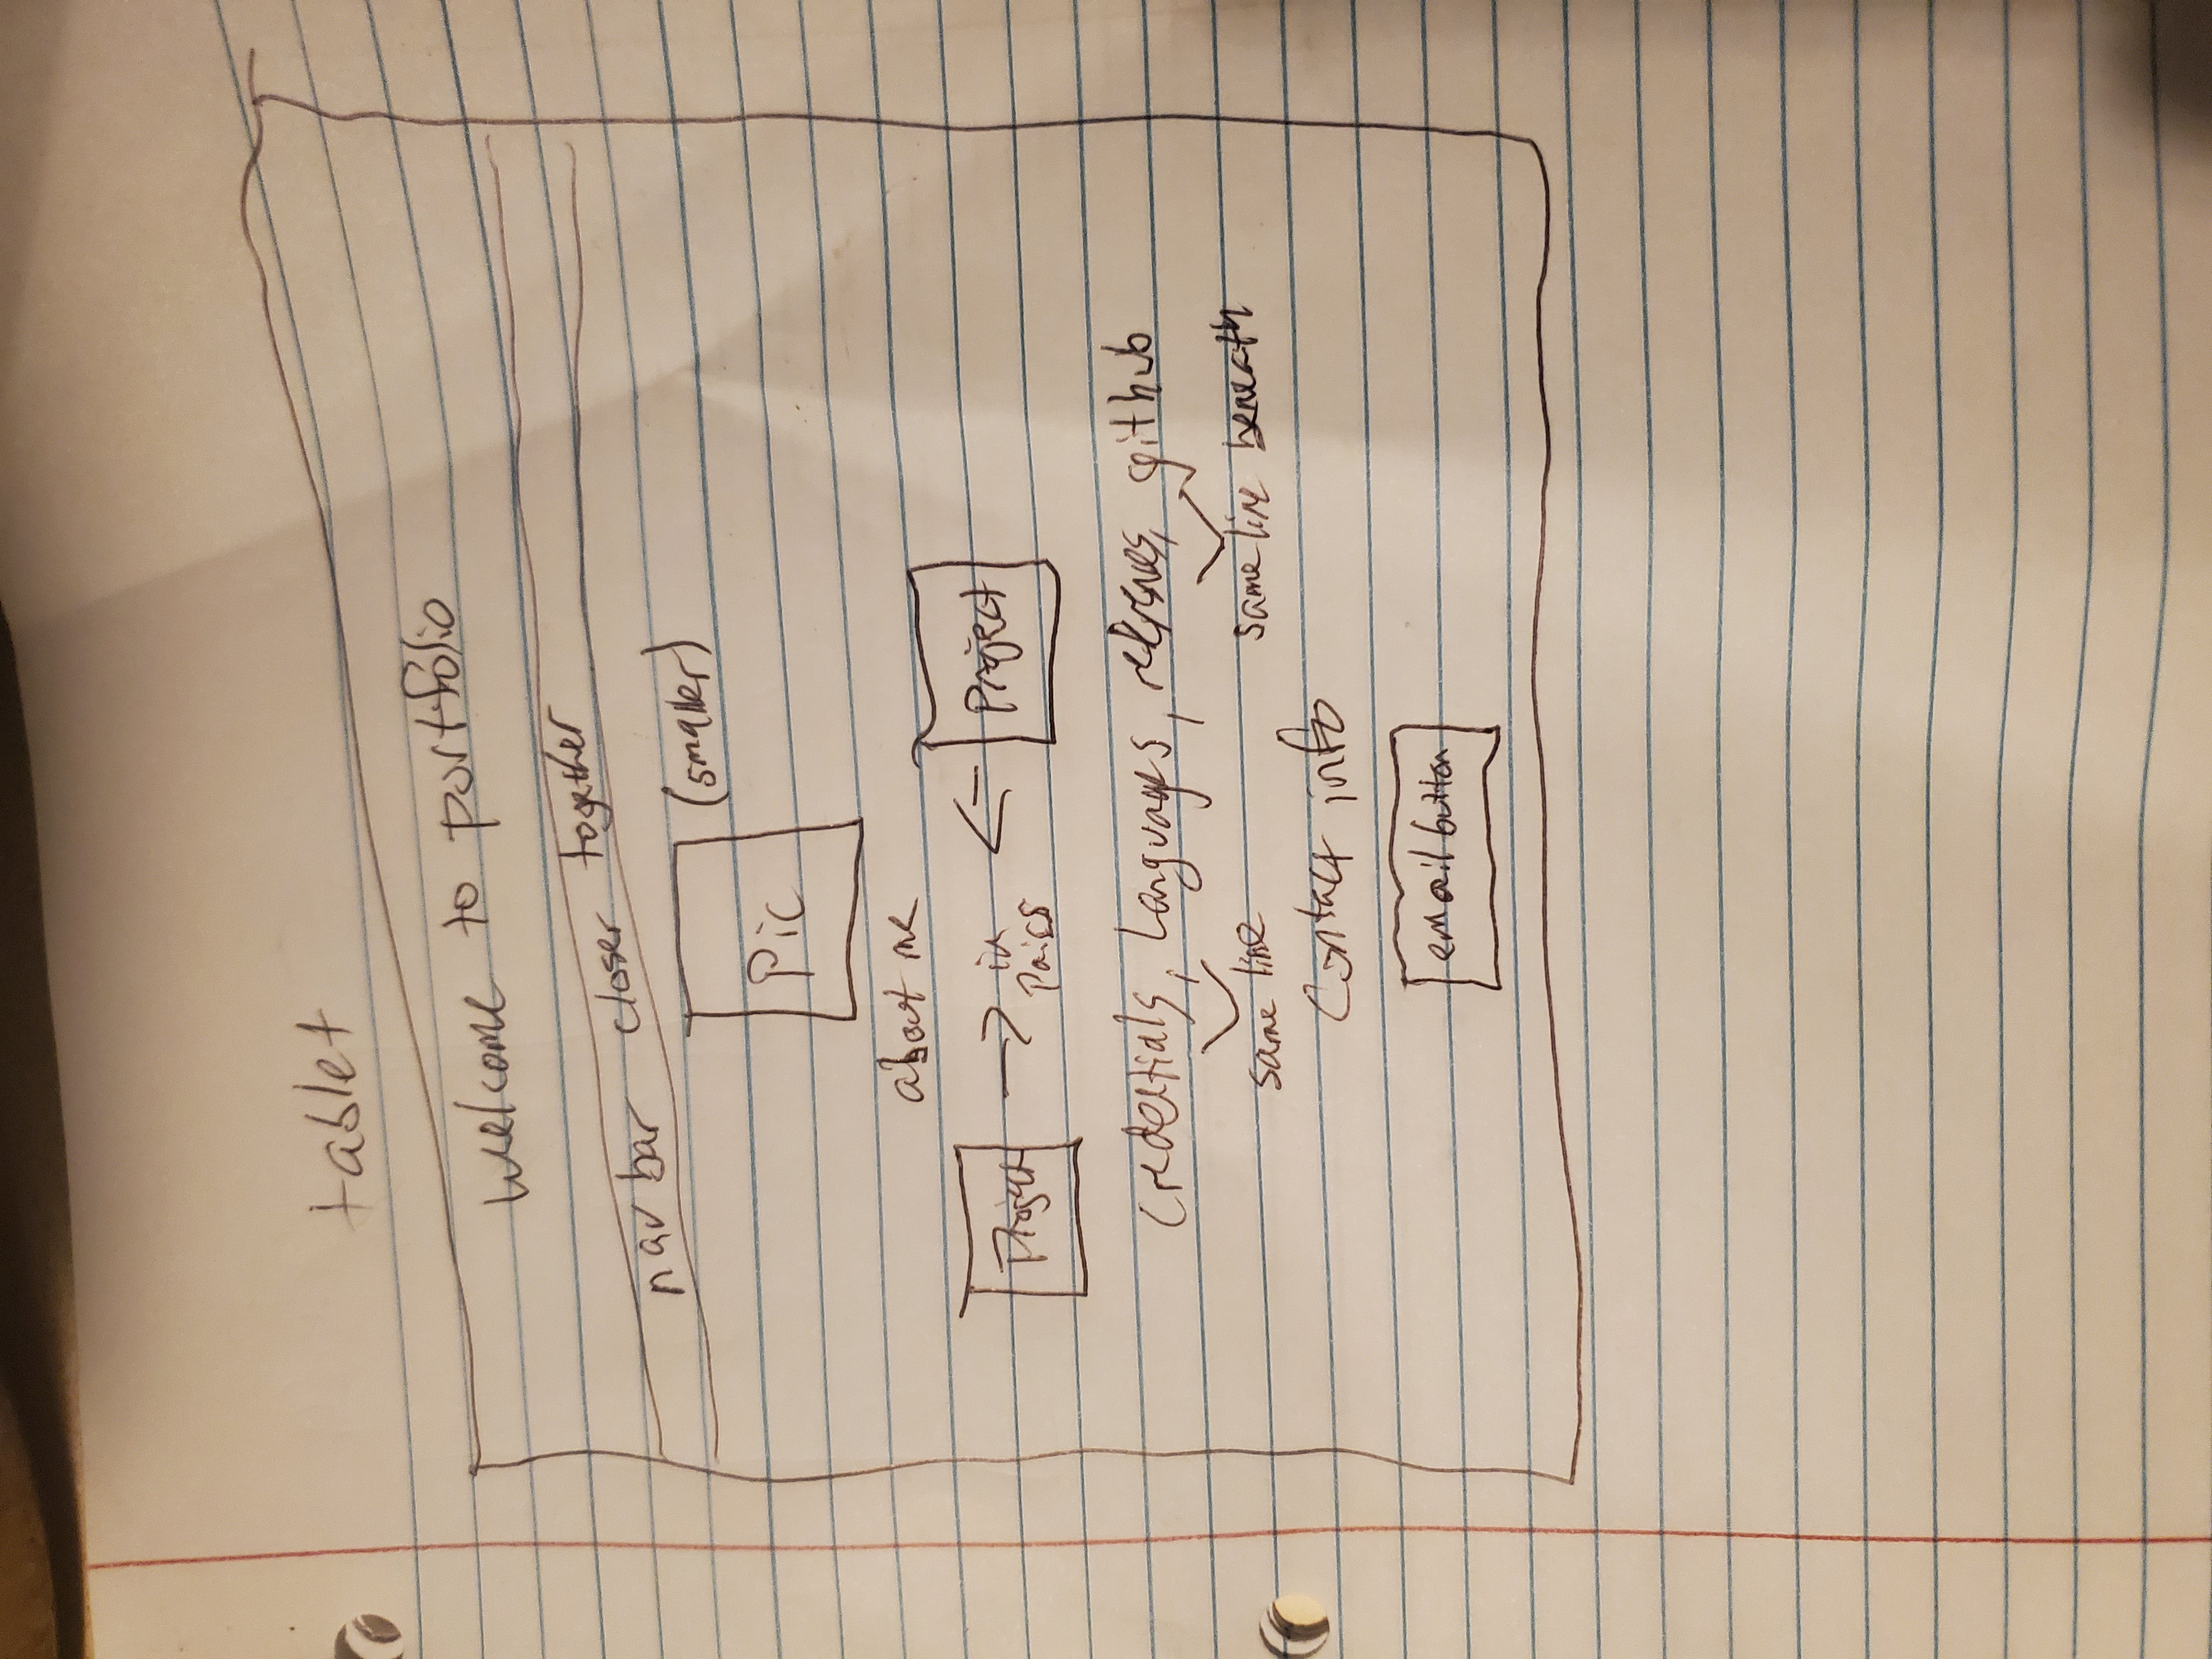 tablet
welcome to portfolio
navbar closer together
Pic (smaller)
about me
Project → in pairs ← Project
Credentials, Languages, refrences, github
same line same line beneath
Contact info
email button